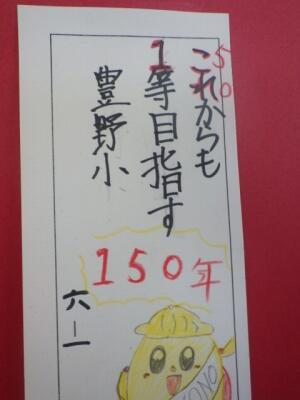 これからも
1等目指す
豊野小
150年
六一一
50